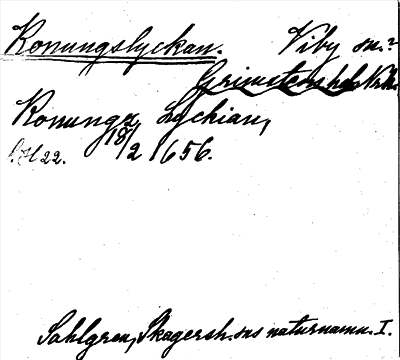 Konungslyckan. Viby sn.?
Grimstens hd, Nrk.
Konungz Lychian,
18/2 1656.
Sahlgren, Skagersh. sns naturnamn. I.